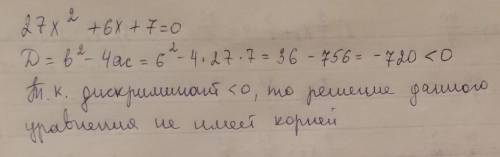 27x² + 6x + 7 = 0
D = b² - 4ac = 6² - 4 · 27 · 7 = 36 - 756 = -720 < 0
Т.к. дискриминант < 0, то решение данного
уравнения не имеет корней